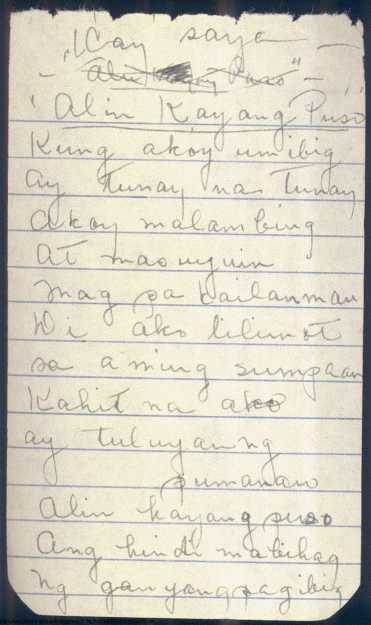 "Kay saya
- Puso" -
"Alin Kayang Puso"
Kung akoy umibig
ay tunay na tunay
Akoy malambing
At masuyuin
mag pa kailanman
Di ako lilimot
sa aming sumpaan
Kahit na ako
ay tuluyanng
pumanaw
Alin kayang puso
Ang hindi mabihag
Ng ganyang pagibig